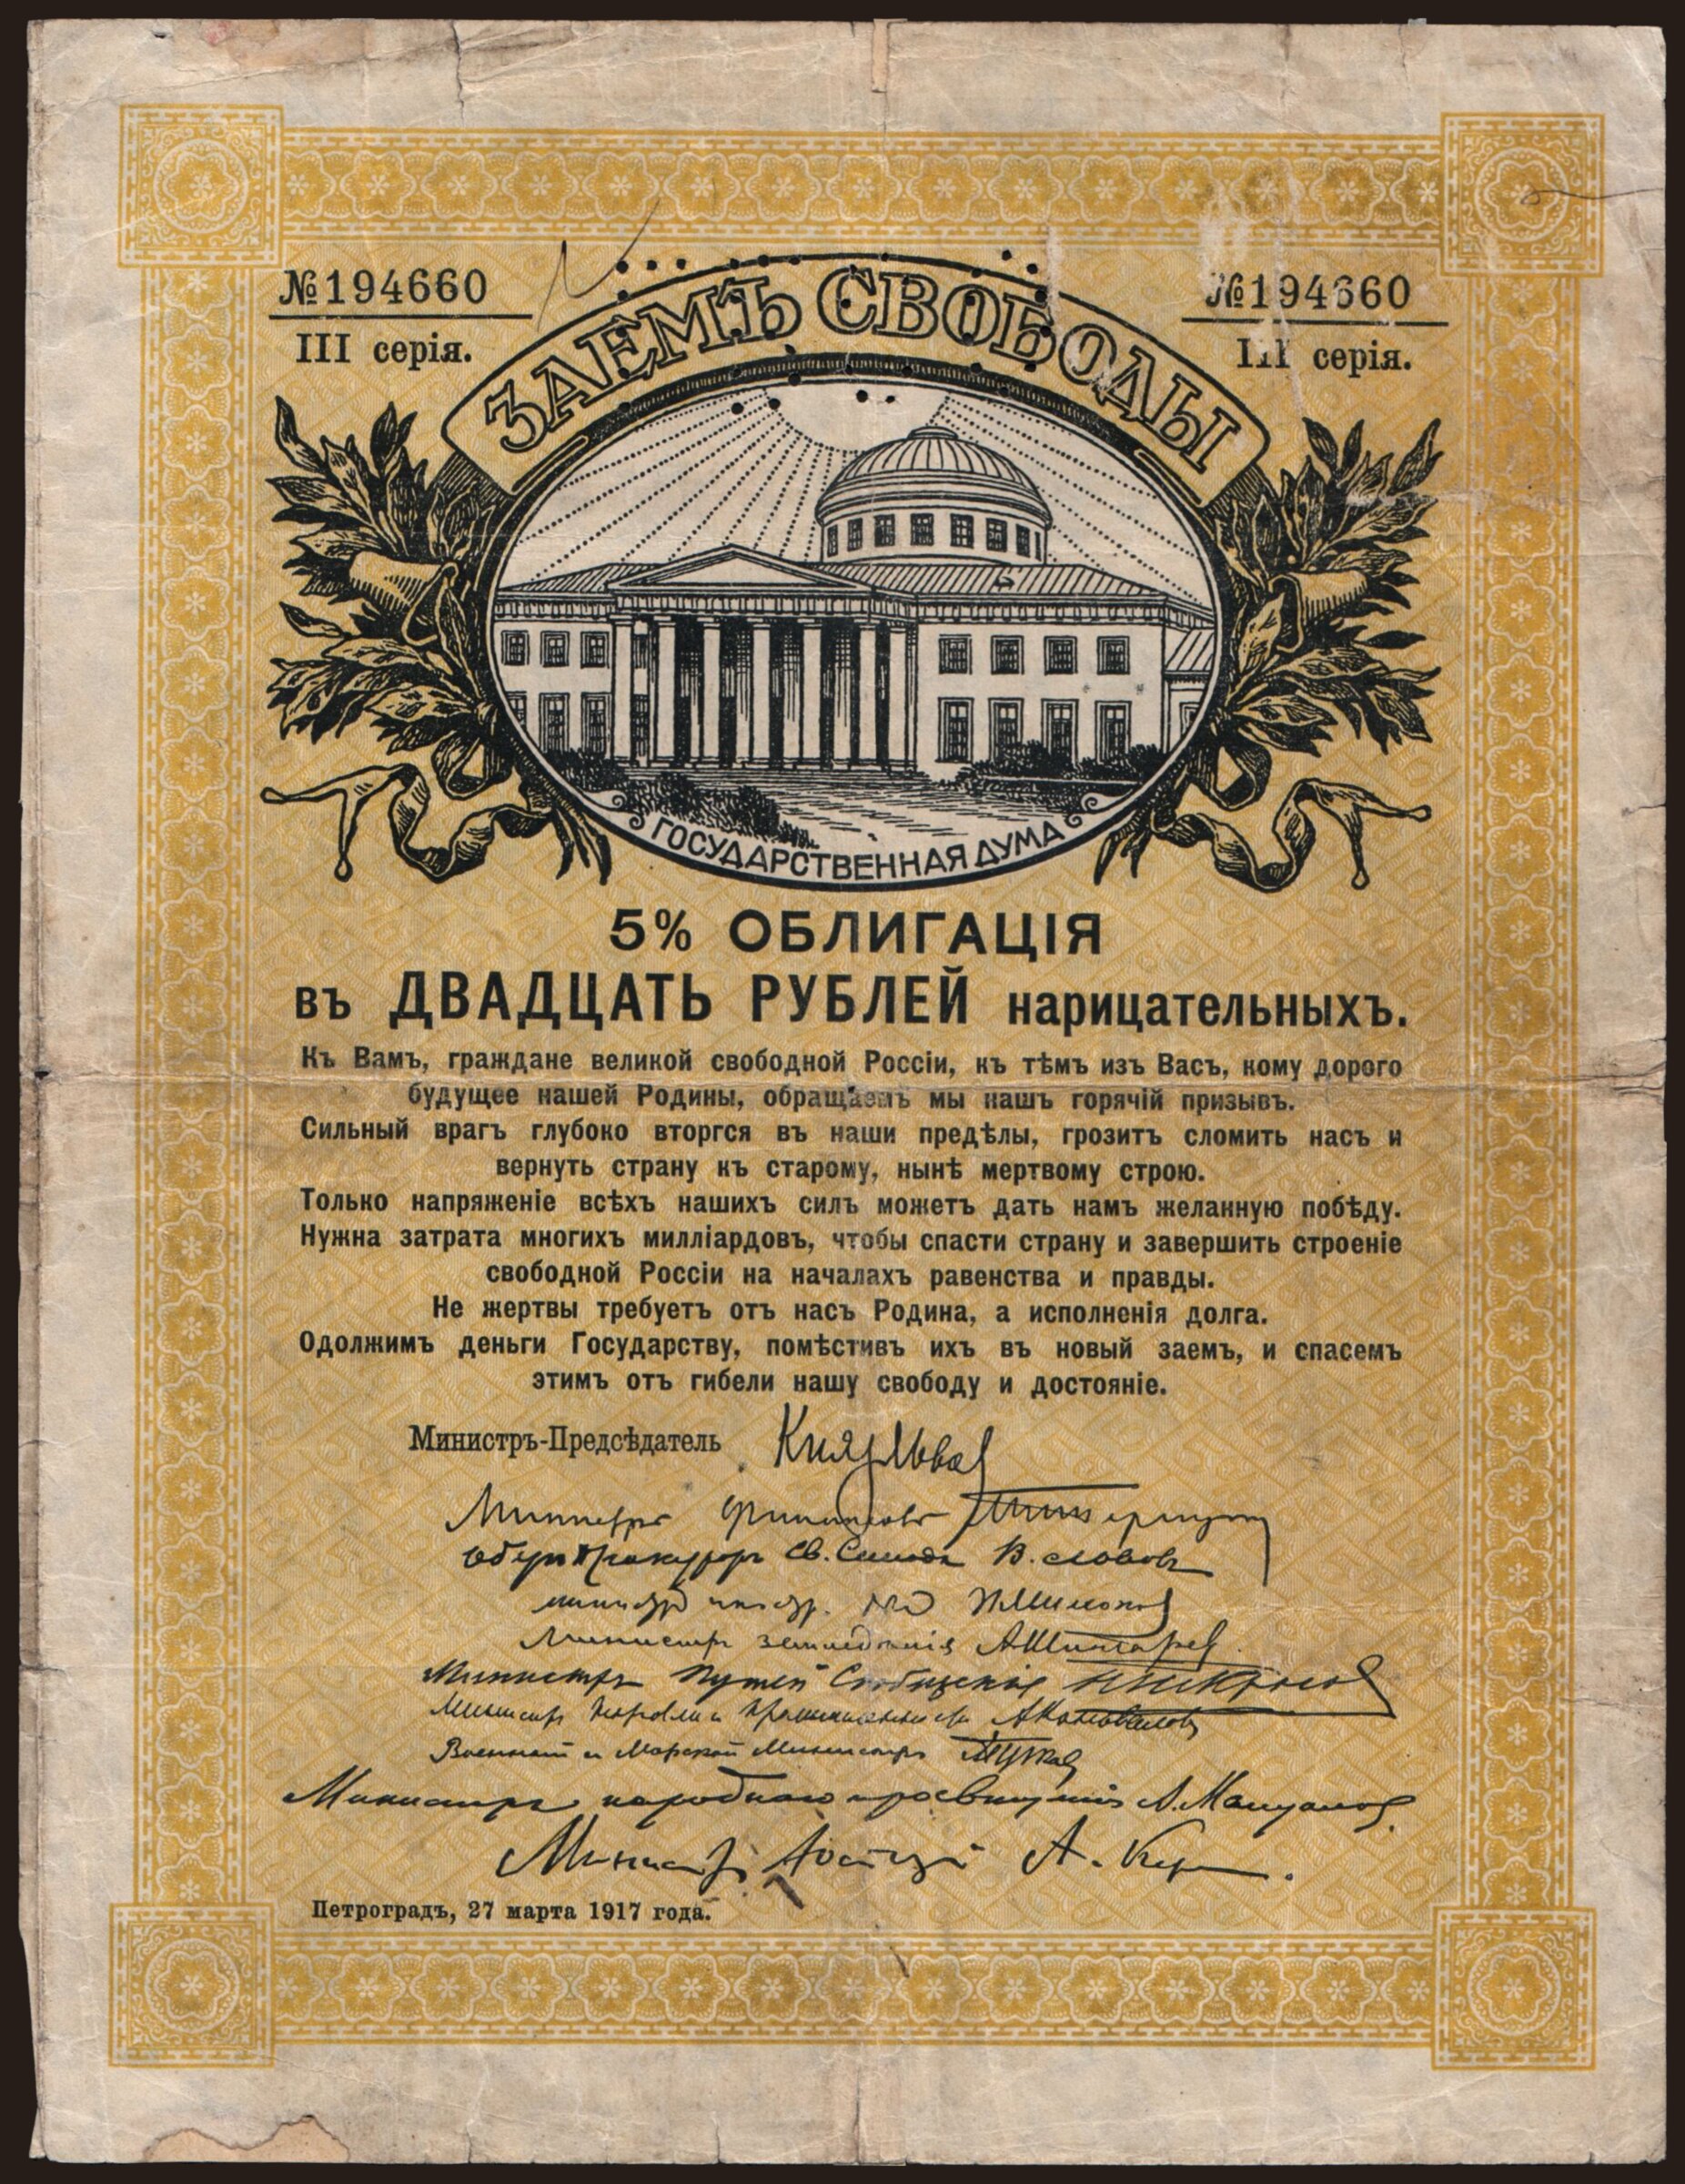 №194660
№194660
III серія.
III серія.
ЗАЕМЪ СВОБОДЫ
ГОСУДАРСТВЕННАЯ ДУМА
5% ОБЛИГАЦІЯ
въ ДВАДЦАТЬ РУБЛЕЙ нарицательныхъ.
Къ Вамъ, граждане великой свободной Россіи, къ тѣмъ изъ Васъ, кому дорого
будущее нашей Родины, обращаемъ мы нашъ горячій призывъ.
Сильный врагъ глубоко вторгся въ наши предѣлы, грозитъ сломить насъ и
вернуть страну къ старому, нынѣ мертвому строю.
Только напряженіе всѣхъ нашихъ силъ можетъ дать намъ желанную побѣду.
Нужна затрата многихъ милліардовъ, чтобы спасти страну и завершить строеніе
свободной Россіи на началахъ равенства и правды.
Не жертвы требуетъ отъ насъ Родина, а исполненія долга.
Одолжимъ деньги Государству, помѣстивъ ихъ въ новый заемъ, и спасемъ
этимъ отъ гибели нашу свободу и достояніе.
Министръ-Предсѣдатель Князь Львов
Министръ Финансовъ
Оберъ Прокуроръ Св. Синода В. Львовъ
Министр Земледѣлія А Шингарев
Министръ Путей Сообщенія
Министръ Торговли и Промышленности А Коновалов
Военный и Морской Министръ
Министръ народного просвѣщенія А. Мануилов
Министр Юстиціи А. Кер
Петроградъ, 27 марта 1917 года.